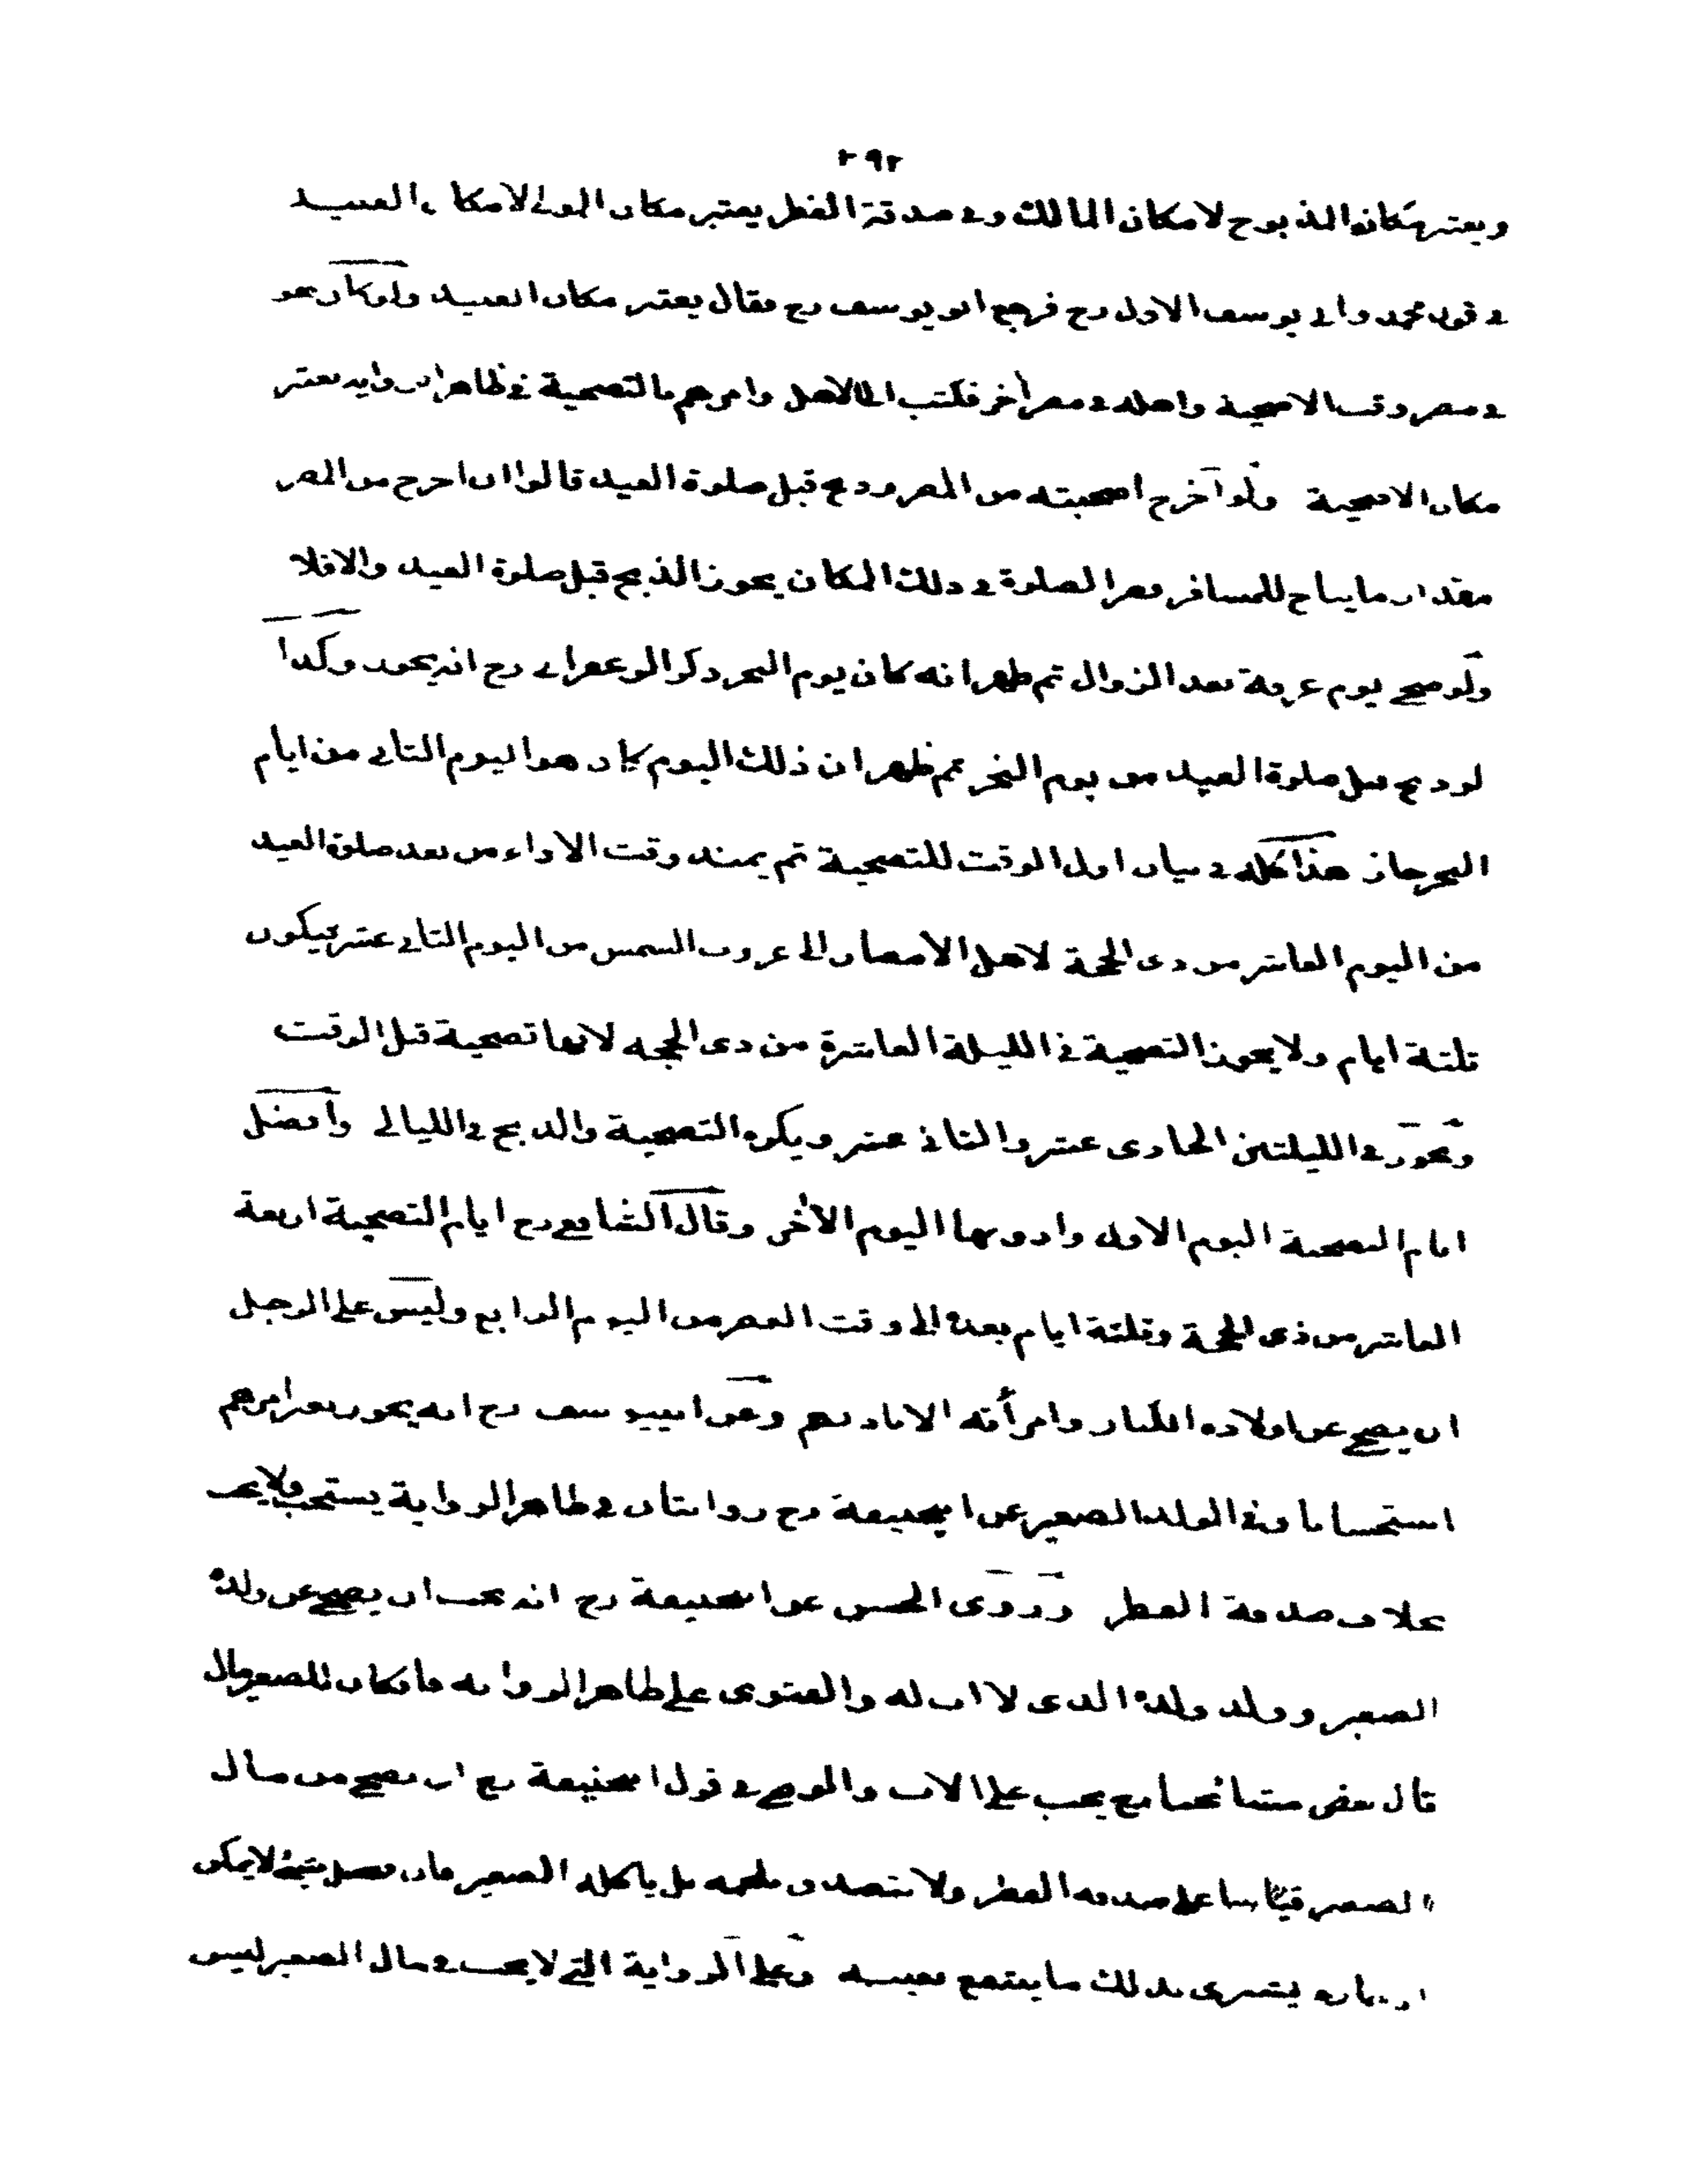 ٢٩٢
ويعتبر مكان المذبوح لا مكان المالك وفي صدقة الفطر يعتبر مكان المولى لا مكان العبيد
في قول محمد وابي يوسف الاول رح فرجع ابو يوسف رح فقال يعتبر مكان العبيد ولو كان هو
في مصر وقت الاضحية واهله في مصر أخر فكتب الى الاهل وامرهم بالتضحية في ظاهر الرواية يعتبر
مكان الاضحية ولو اخرج اضحيته من المصر وذبح قبل صلوة العيد قالوا ان اخرج من المصر
مقدار ما يباح للمسافر قصر الصلوة في ذلك المكان يجوز الذبح قبل صلوة العيد والا فلا
ولو ضحى يوم عرفة بعد الزوال ثم ظهر انه كان يوم النحر ذكر الزعفراني رح انه يجوز وكذا
لو ذبح قبل صلوة العيد من يوم النحر ثم ظهر ان ذلك اليوم كان هو اليوم الثاني من ايام
النحر جاز هذا كله في بيان اول الوقت للتضحية ثم يمتد وقت الاداء من بعد صلوة العيد
من اليوم العاشر من ذي الحجة لاهل الامصار الى غروب الشمس من اليوم الثاني عشر فيكون
ثلثة ايام ولا يجوز التضحية في الليلة العاشرة من ذي الحجه لانها تضحية قبل الوقت
وتجوز في الليلتين الحادي عشر والثاني عشر ويكره التضحية والذبح في الليالي وافضل
ايام التضحية اليوم الاول وادونها اليوم الأخر وقال الشافعي رح ايام التضحية اربعة
العاشر من ذي الحجة وثلثة ايام بعده الى وقت العصر من اليوم الرابع وليس على الرجل
ان يضحي عن اولاده الكبار وامرأته الا باذنهم وعن ابييوسف رح انه يجوز بغير امرهم
استحسانا وفي الولد الصغير عن ابيحنيفة رح روايتان في ظاهر الرواية يستحب ولا يجب
بخلاف صدقة الفطر وروى الحسن عن ابيحنيفة رح انه يجب ان يضحي عن ولده
الصغير وولد ولده الذي لا اب له والفتوى على ظاهر الرواية فان كان للصغير مال
قال بعض مشائخنا رح يجب على الاب والوصي في قول ابيحنيفة رح ان يضحي من مال
الصغير قياسا على صدقه الفطر ولا يتصدق بلحمه بل ياكله الصغير فان فضل شئ لا يمكن
ادخاره يشتري بذلك ما ينتفع بعينه وعلى الرواية التي لا يجب في مال الصغير ليس